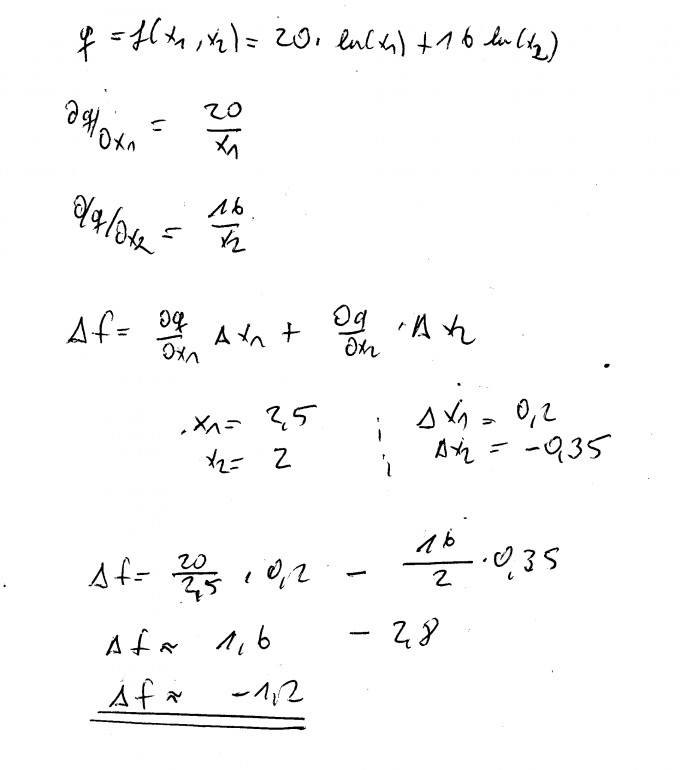 q = f(x₁, x₂) = 20 · ln(x₁) + 16 ln(x₂)
∂q/∂x₁ = 20/x₁
∂q/∂x₂ = 16/x₂
Δf = ∂q/∂x₁ Δx₁ + ∂q/∂x₂ · Δx₂
x₁ = 2,5 ; Δx₁ = 0,2
x₂ = 2 ; Δx₂ = -0,35
Δf = 20/2,5 · 0,2 - 16/2 · 0,35
Δf ≈ 1,6 - 2,8
Δf ≈ -1,2